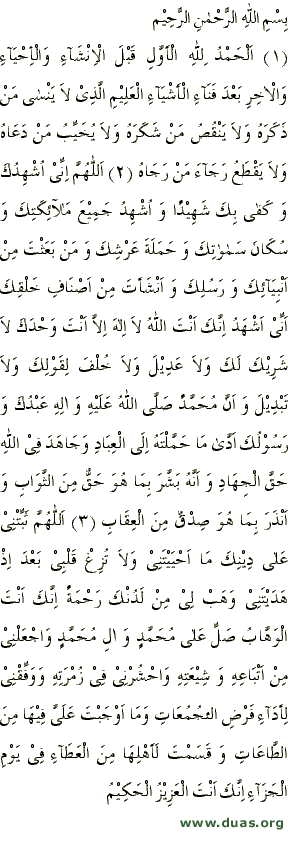 بِسْمِ اللهِ الرَّحْمٰنِ الرَّحِيْمِ
(١) اَلْحَمْدُ لِلّٰهِ الْاَوَّلِ قَبْلَ الْاِنْشَآءِ وَالْاِحْيَآءِ
وَالْاٰخِرِ بَعْدَ فَنَآءِ الْاَشْيَآءِ الْعَلِيْمِ الَّذِىْ لاَ يَنْسٰى مَنْ
ذَكَرَهُ وَلاَ يَنْقُصُ مَنْ شَكَرَهُ وَلاَ يُخَيِّبُ مَنْ دَعَاهُ
وَلاَ يَقْطَعُ رَجَآءَ مَنْ رَجَاهُ (٢) اَللّٰهُمَّ اِنِّىْ اُشْهِدُكَ
وَ كَفٰى بِكَ شَهِيْدًا وَ اُشْهِدُ جَمِيْعَ مَلَآئِكَتِكَ وَ
سُكَّانَ سَمٰوٰتِكَ وَ حَمَلَةَ عَرْشِكَ وَ مَنْ بَعَثْتَ مِنْ
اَنْبِيَآئِكَ وَ رَسُلِكَ وَ اَنْشَاْتَ مِنْ اَصْنَافِ خَلْقِكَ
اَنِّىْ اَشْهَدُ اِنَّكَ اَنْتَ اللهُ لاَ اِلٰهَ اِلاَّ اَنْتَ وَحْدَكَ لاَ
شَرِيْكَ لَكَ وَلاَ عَدِيْلَ وَلاَ خُلْفَ لِقَوْلِكَ وَلاَ
تَبْدِيْلَ وَ اَنَّ مُحَمَّدًا صَلَّى اللهُ عَلَيْهِ وَ اٰلِهِ عَبْدُكَ وَ
رَسُوْلُكَ اَدّٰى مَا حَمَّلْتَهُ اِلَى الْعِبَادِ وَجَاهَدَ فِىْ اللهِ
حَقَّ الْجِهَادِ وَ اَنَّهُ بَشَّرَ بِمَا هُوَ حَقٌّ مِنَ الثَّوَابِ وَ
اَنْذَرَ بِمَا هُوَ صِدْقٌ مِنَ الْعِقَابِ (٣) اَللّٰهُمَّ ثَبِّتْنِىْ
عَلٰى دِيْنِكَ مَا اَحْيَيْتَنِىْ وَلاَ تُزِغْ قَلْبِىْ بَعْدَ اِذْ
هَدَيْتَنِىْ وَهَبْ لِىْ مِنْ لَدُنْكَ رَحْمَةً اِنَّكَ اَنْتَ
الْوَهَّابُ صَلِّ عَلٰى مُحَمَّدٍ وَ اٰلِ مُحَمَّدٍ وَاجْعَلْنِىْ
مِنْ اَتْبَاعِهِ وَ شِيْعَتِهِ وَاحْشُرْنِىْ فِىْ زُمْرَتِهِ وَوَفِّقْنِىْ
لِاَدَآءِ فَرْضِ الْجُمُعَاتِ وَمَا اَوْجَبْتَ عَلَىَّ فِيْهَا مِنَ
الطَّاعَاتِ وَ قَسَمْتَ لِاَهْلِهَا مِنَ الْعَطَآءِ فِىْ يَوْمِ
الْجَزَآءِ اِنَّكَ اَنْتَ الْعَزِيْزُ الْحَكِيْمُ
www.duas.org